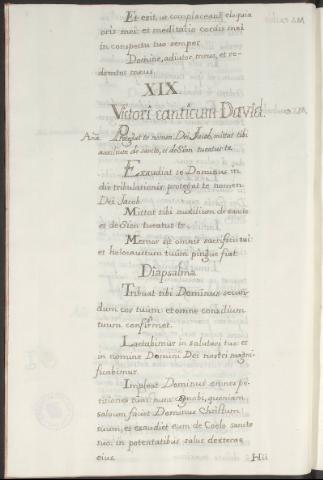 Et erit, ut complaceant eloquia
oris mei: et meditatio cordis mei
in conspectu tuo semper.
Domine, adiutor meus, et re-
demtor meus.
XIX
Victori canticum David.
Añã Protegat te nomen Dei Jacob, mittat tibi
auxilium de sancto, et de Sion tueatur te.
Exaudiat te Dominus in
die tribulationis: protegat te nomen
Dei Jacob.
Mittat tibi auxilium de sancto
et de Sion tueatur te.
Memor sit omnis sacrificii tui:
et holocaustum tuum pingue fiat.
Diapsalma
Tribuat tibi Dominus secun-
dum cor tuum: et omne consilium
tuum confirmet.
Laetabimur in salutari tuo: et
in nomine Domini Dei nostri magni-
ficabimur.
Impleat Dominus omnes pe-
titiones tuas: nunc cognovi, quoniam
salvum faciet Dominus Christum
suum, et exaudiet eum de Coelo sancto
suo: in potentatibus salus dexterae
eius.
Hii